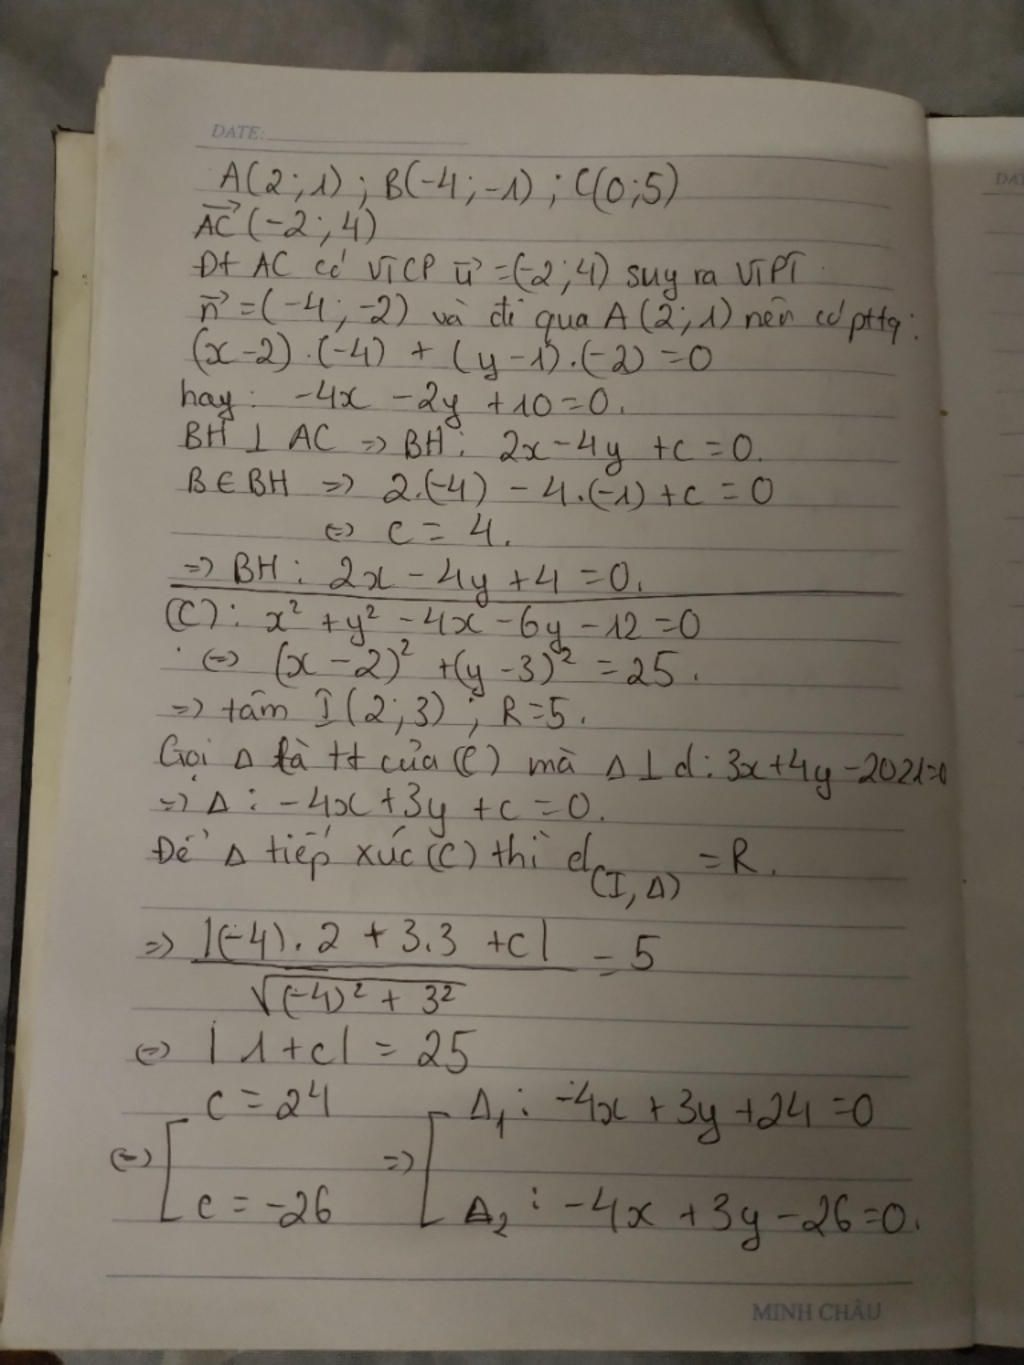 DATE:
A(2;1); B(-4;-1); C(0;5)
AC→(-2;4)
Đt AC có VTCP u→=(-2;4) suy ra VTPT
n→=(-4;-2) và đi qua A(2;1) nên có pttq:
(x-2).(-4) + (y-1).(-2)=0
hay: -4x -2y +10=0.
BH ⊥ AC => BH: 2x-4y +c=0.
B∈BH => 2.(-4) -4.(-1)+c=0
<=> c= 4.
=> BH: 2x-4y+4=0.
(C): x²+y²-4x-6y-12=0
<=> (x-2)²+(y-3)²=25.
=> tâm I(2;3); R=5.
Gọi Δ là tt của (C) mà Δ⊥d: 3x+4y-2021=0
=> Δ: -4x+3y+c=0.
Để Δ tiếp xúc (C) thì d(I,Δ) =R.
=> |(-4).2 + 3.3 +c| / √(-4)²+3² = 5
<=> |1+c| = 25
<=> [ c=24 => [ Δ₁: -4x+3y+24=0
c=-26 Δ₂: -4x+3y-26=0.
MINH CHÂU
DAT